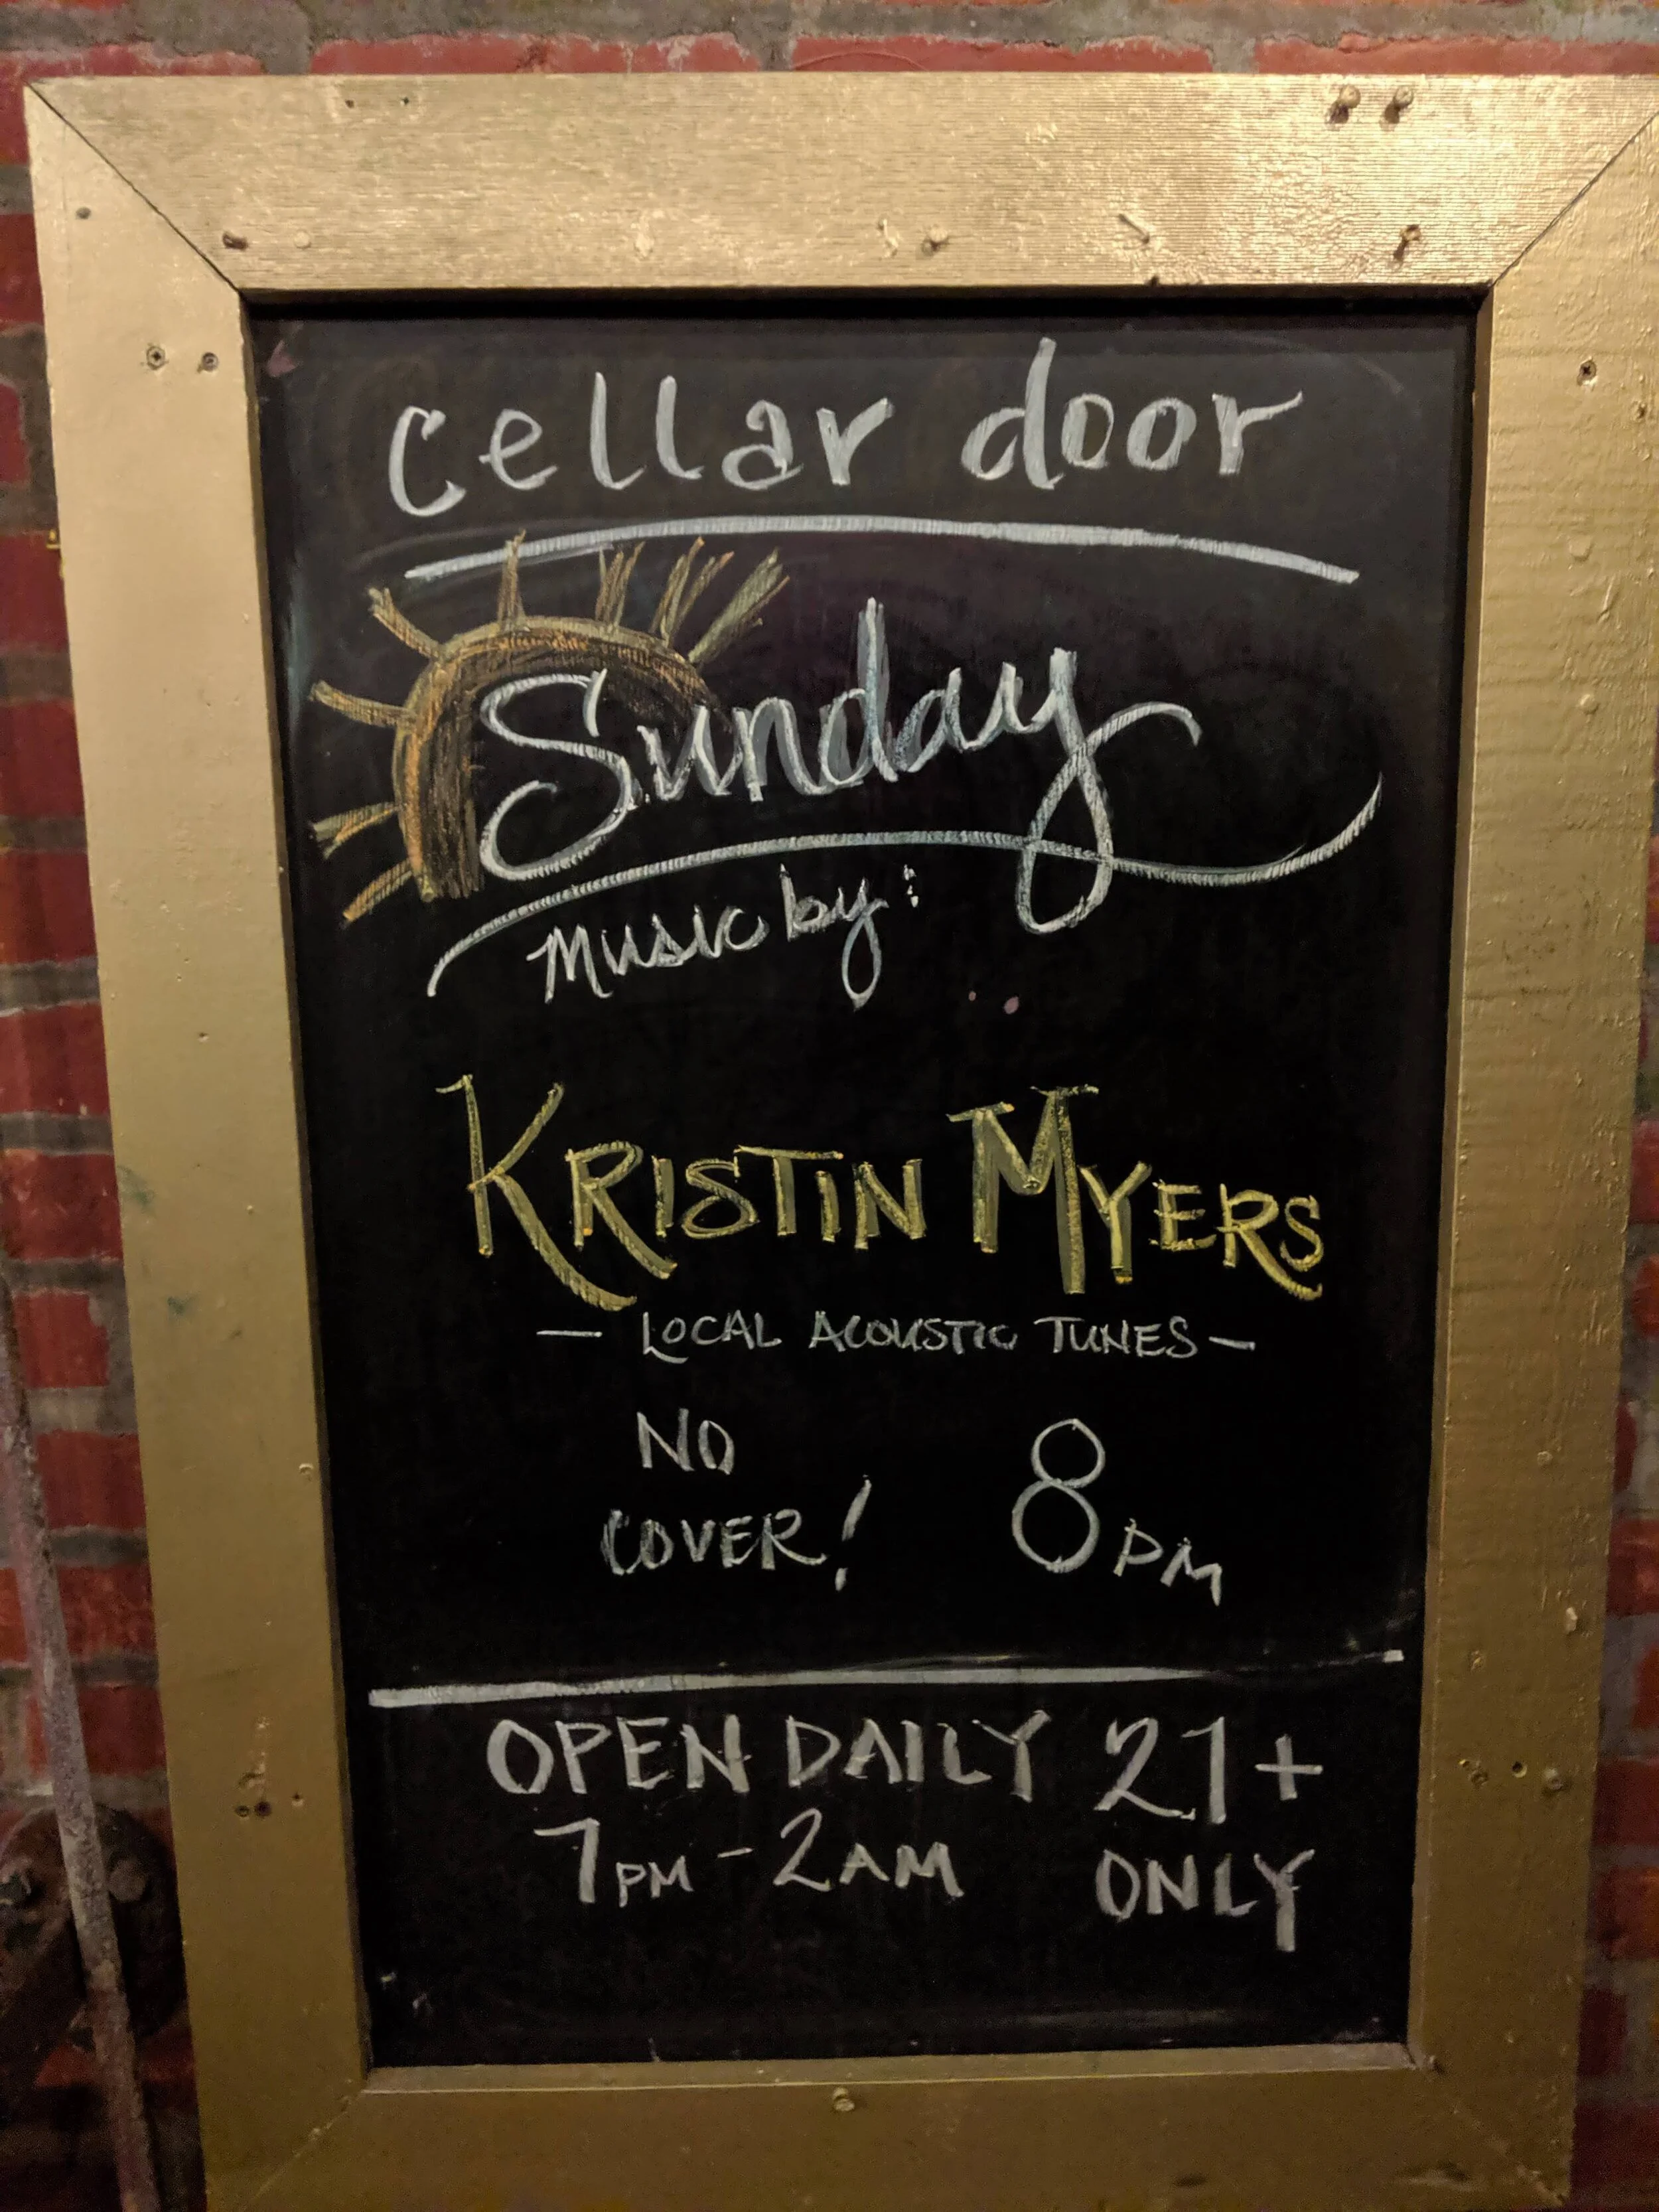 cellar door
Sunday
Music by:
KRISTIN MYERS
— LOCAL ACOUSTIC TUNES —
NO
COVER! 8PM
OPEN DAILY 21+
7PM - 2AM ONLY